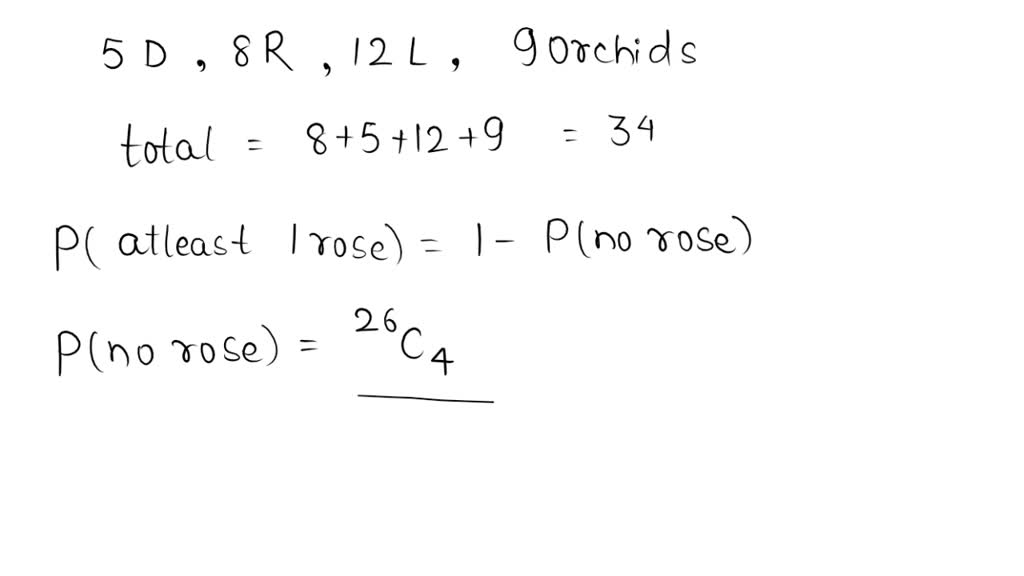 5 D , 8 R , 12 L , 9 orchids
total = 8 + 5 + 12 + 9 = 34
P( atleast 1 rose) = 1 - P(no rose)
P(no rose) = ²⁶C₄